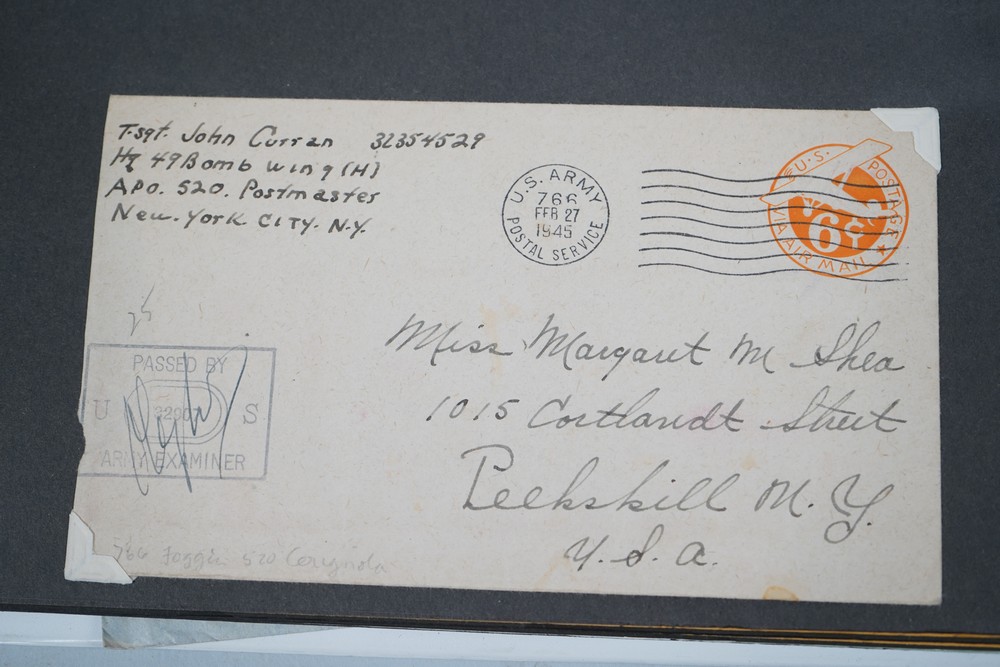 T-sgt. John Curran 32354529
Hq 49 Bomb wing (H)
APO. 520. Postmaster
New. York CITY. N.Y.
U.S. ARMY
766
FEB 27
1945
POSTAL SERVICE
U.S. POSTAGE
6¢
VIA AIR MAIL
Miss Margaret M Shea
1015 Cortlandt Street
Peekskill N.Y.
U.S.A.
PASSED BY
U S
ARMY EXAMINER
766 Foggia 520 Cerignola